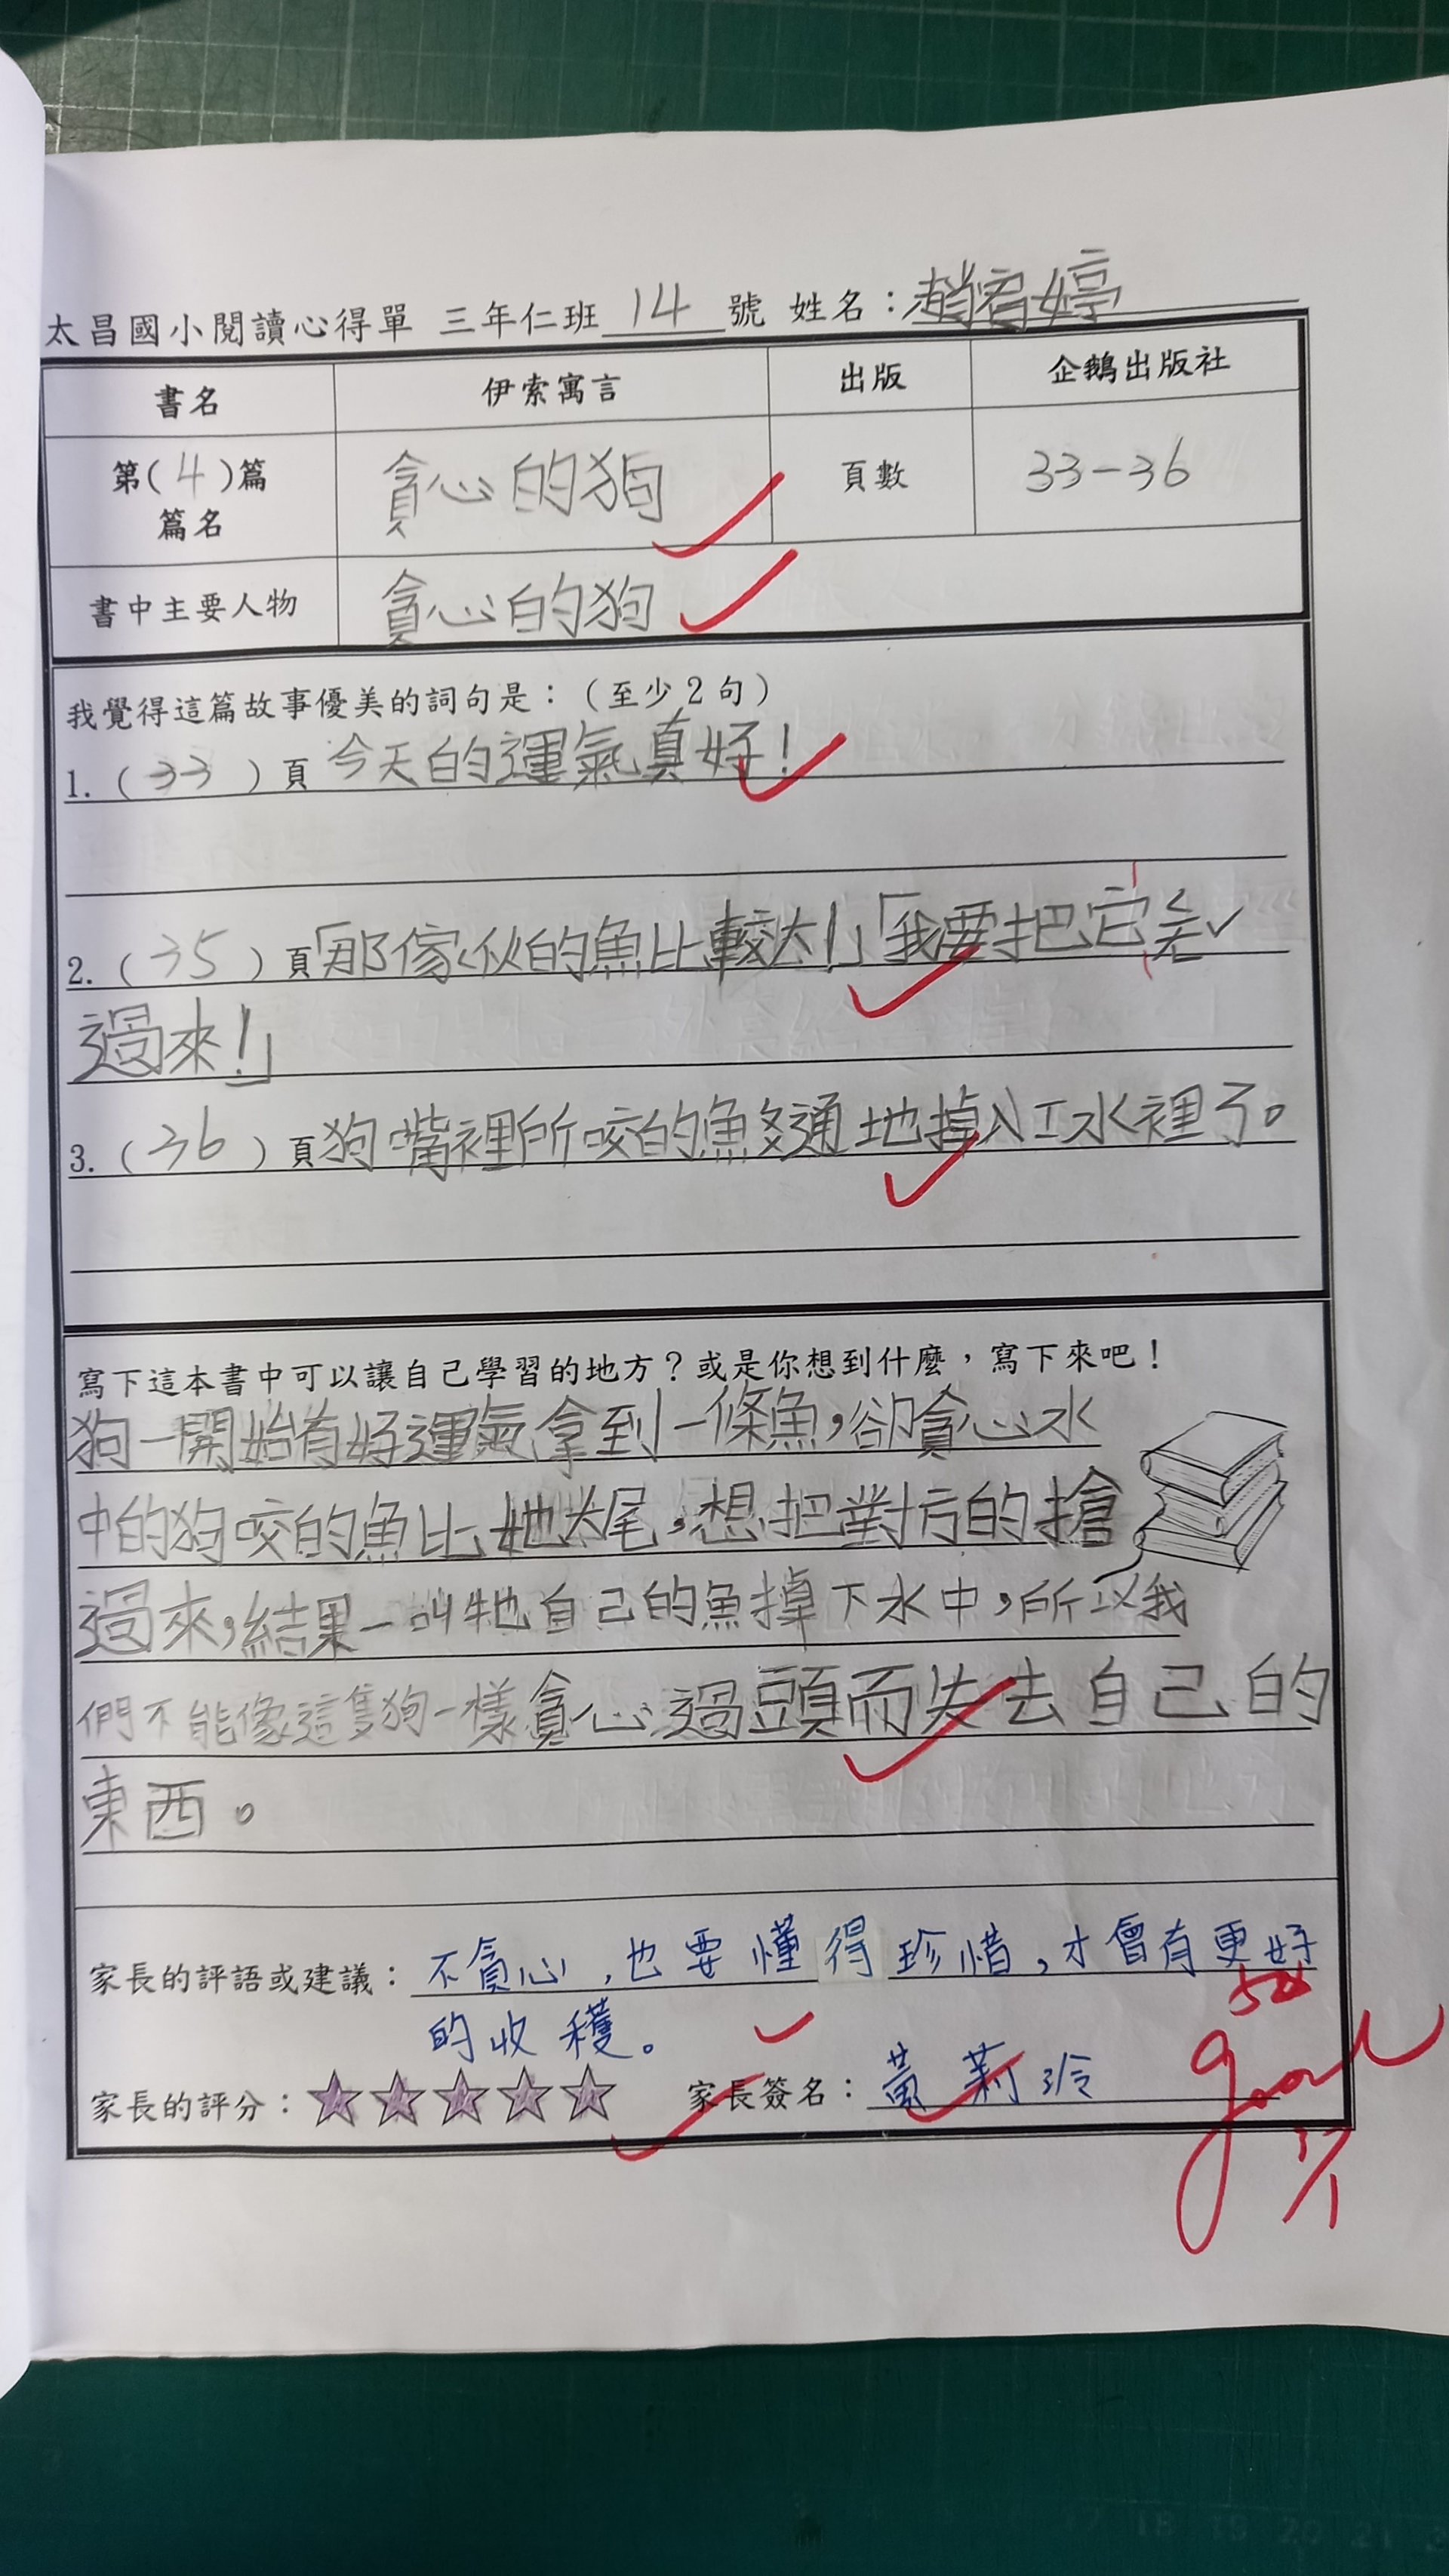 太昌國小閱讀心得單 三年仁班 14 號 姓名：趙宥婷
書名 伊索寓言 出版 企鵝出版社
第(4)篇 篇名 貪心的狗 頁數 33-36
書中主要人物 貪心的狗
我覺得這篇故事優美的詞句是：（至少2句）
1.（33）頁 今天的運氣真好！
2.（35）頁「那傢伙的魚比較大！」「我要把它
過來！」
3.（36）頁狗嘴裡所咬的魚 通地掉入江水裡了。
寫下這本書中可以讓自己學習的地方？或是你想到什麼，寫下來吧！
狗一開始有好運氣拿到一條魚，卻貪心水
中的狗咬的魚比她大尾，想把對方的搶
過來，結果一叫牠自己的魚掉下水中，所以我
們不能像這隻狗一樣貪心過頭而失去自己的
東西。
家長的評語或建議：不貪心，也要懂得珍惜，才會有更好
的收穫。
家長的評分：☆☆☆☆☆ 家長簽名：黃莉玲
good